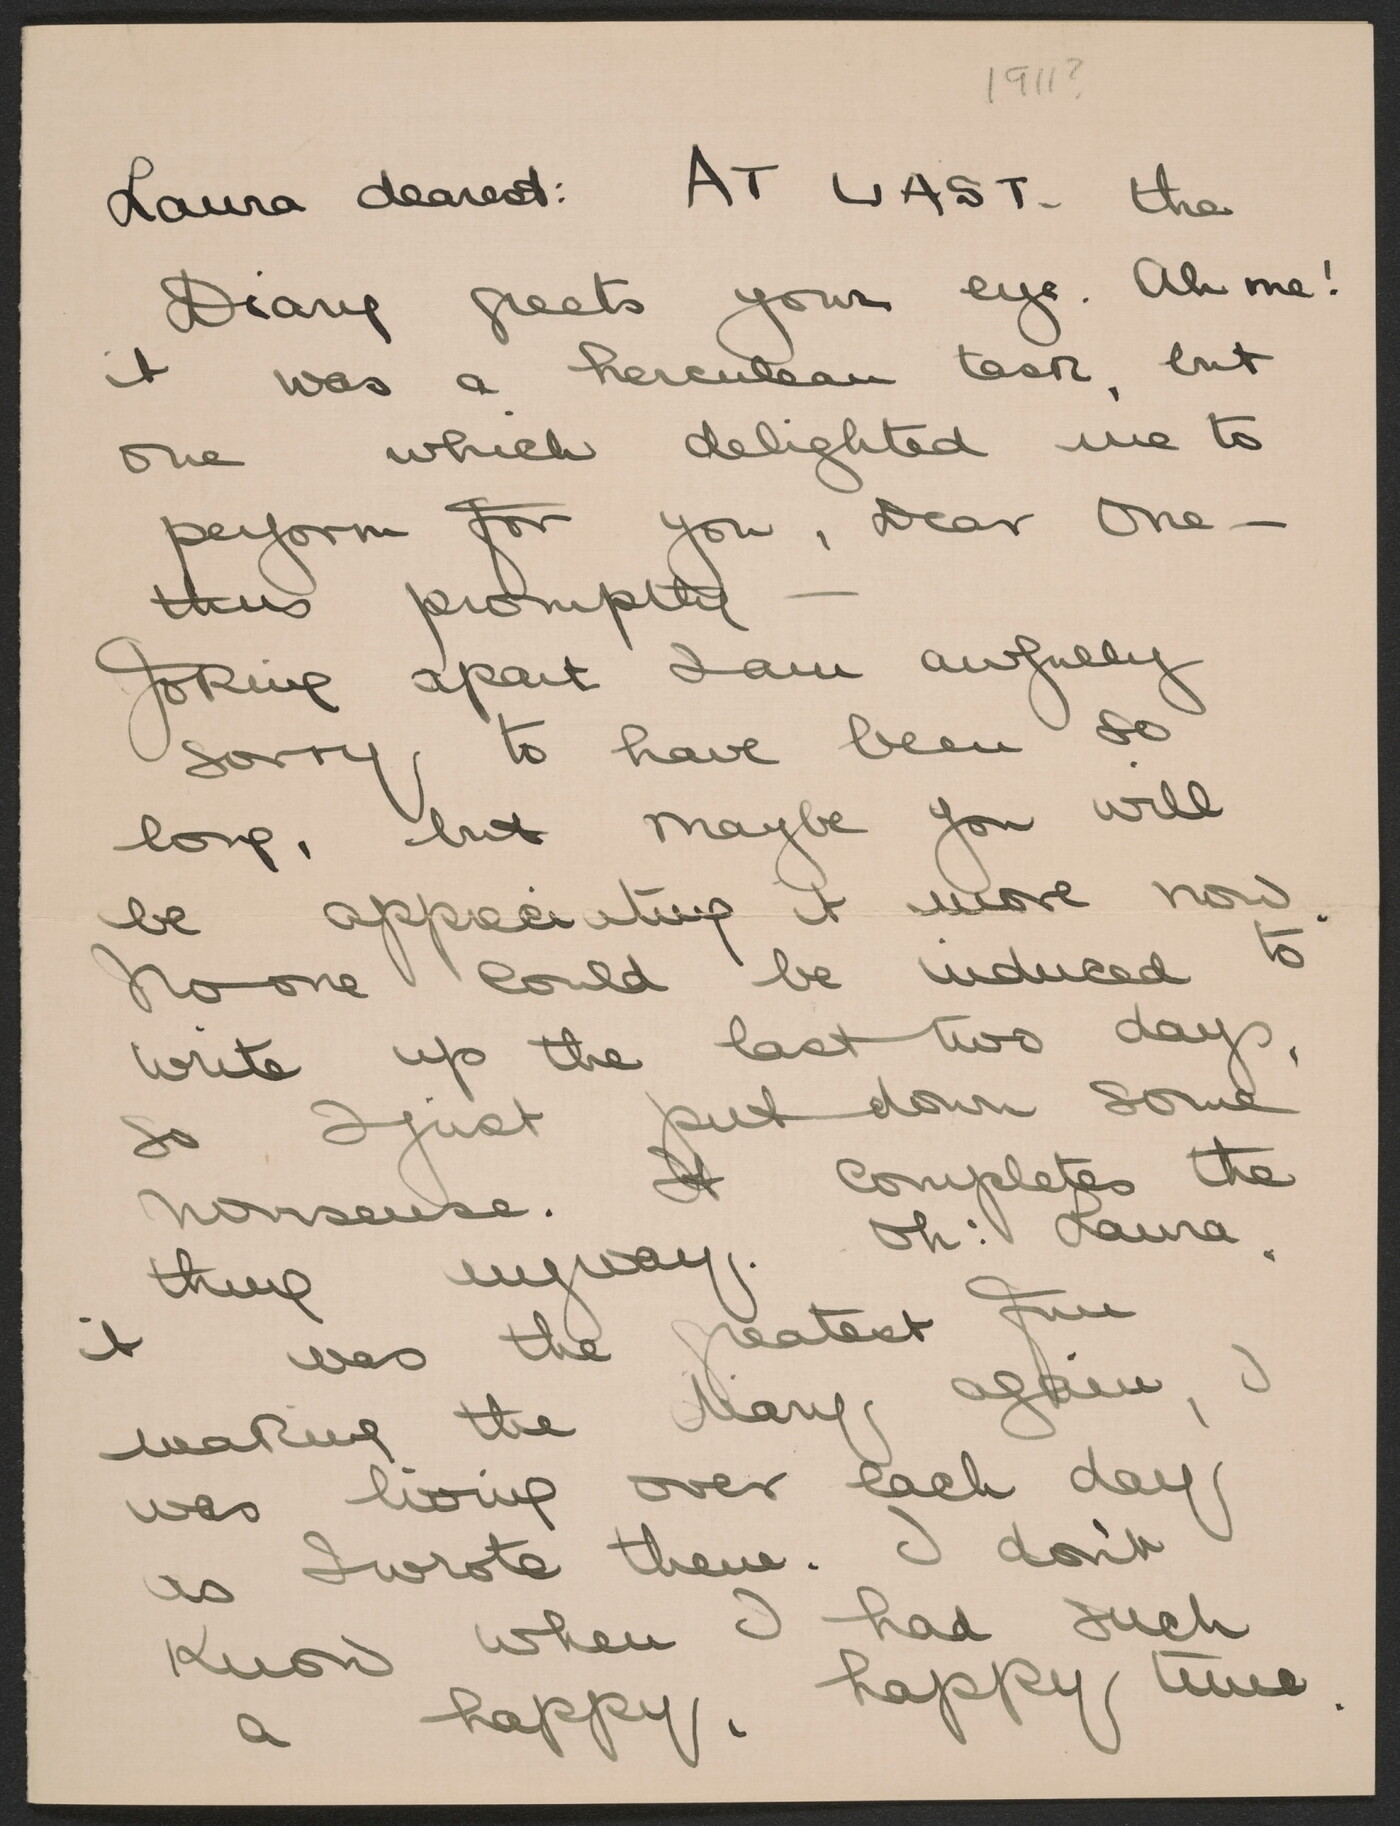 1911?
Laura dearest: AT LAST - the
Diary greets your eye. Ah me!
it was a herculean task, but
one which delighted me to
perform for you, Dear One —
thus promptly —
Joking apart I am awfully
sorry to have been so
long, but maybe you will
be appreciating it more now.
No-one could be induced to
write up the last two days,
so I just put down some
nonsense. It completes the
thing anyway. Oh: Laura,
it was the greatest fun
making the diary again, I
was living over each day
as I wrote them. I don't
know when I had such
a happy, happy time.